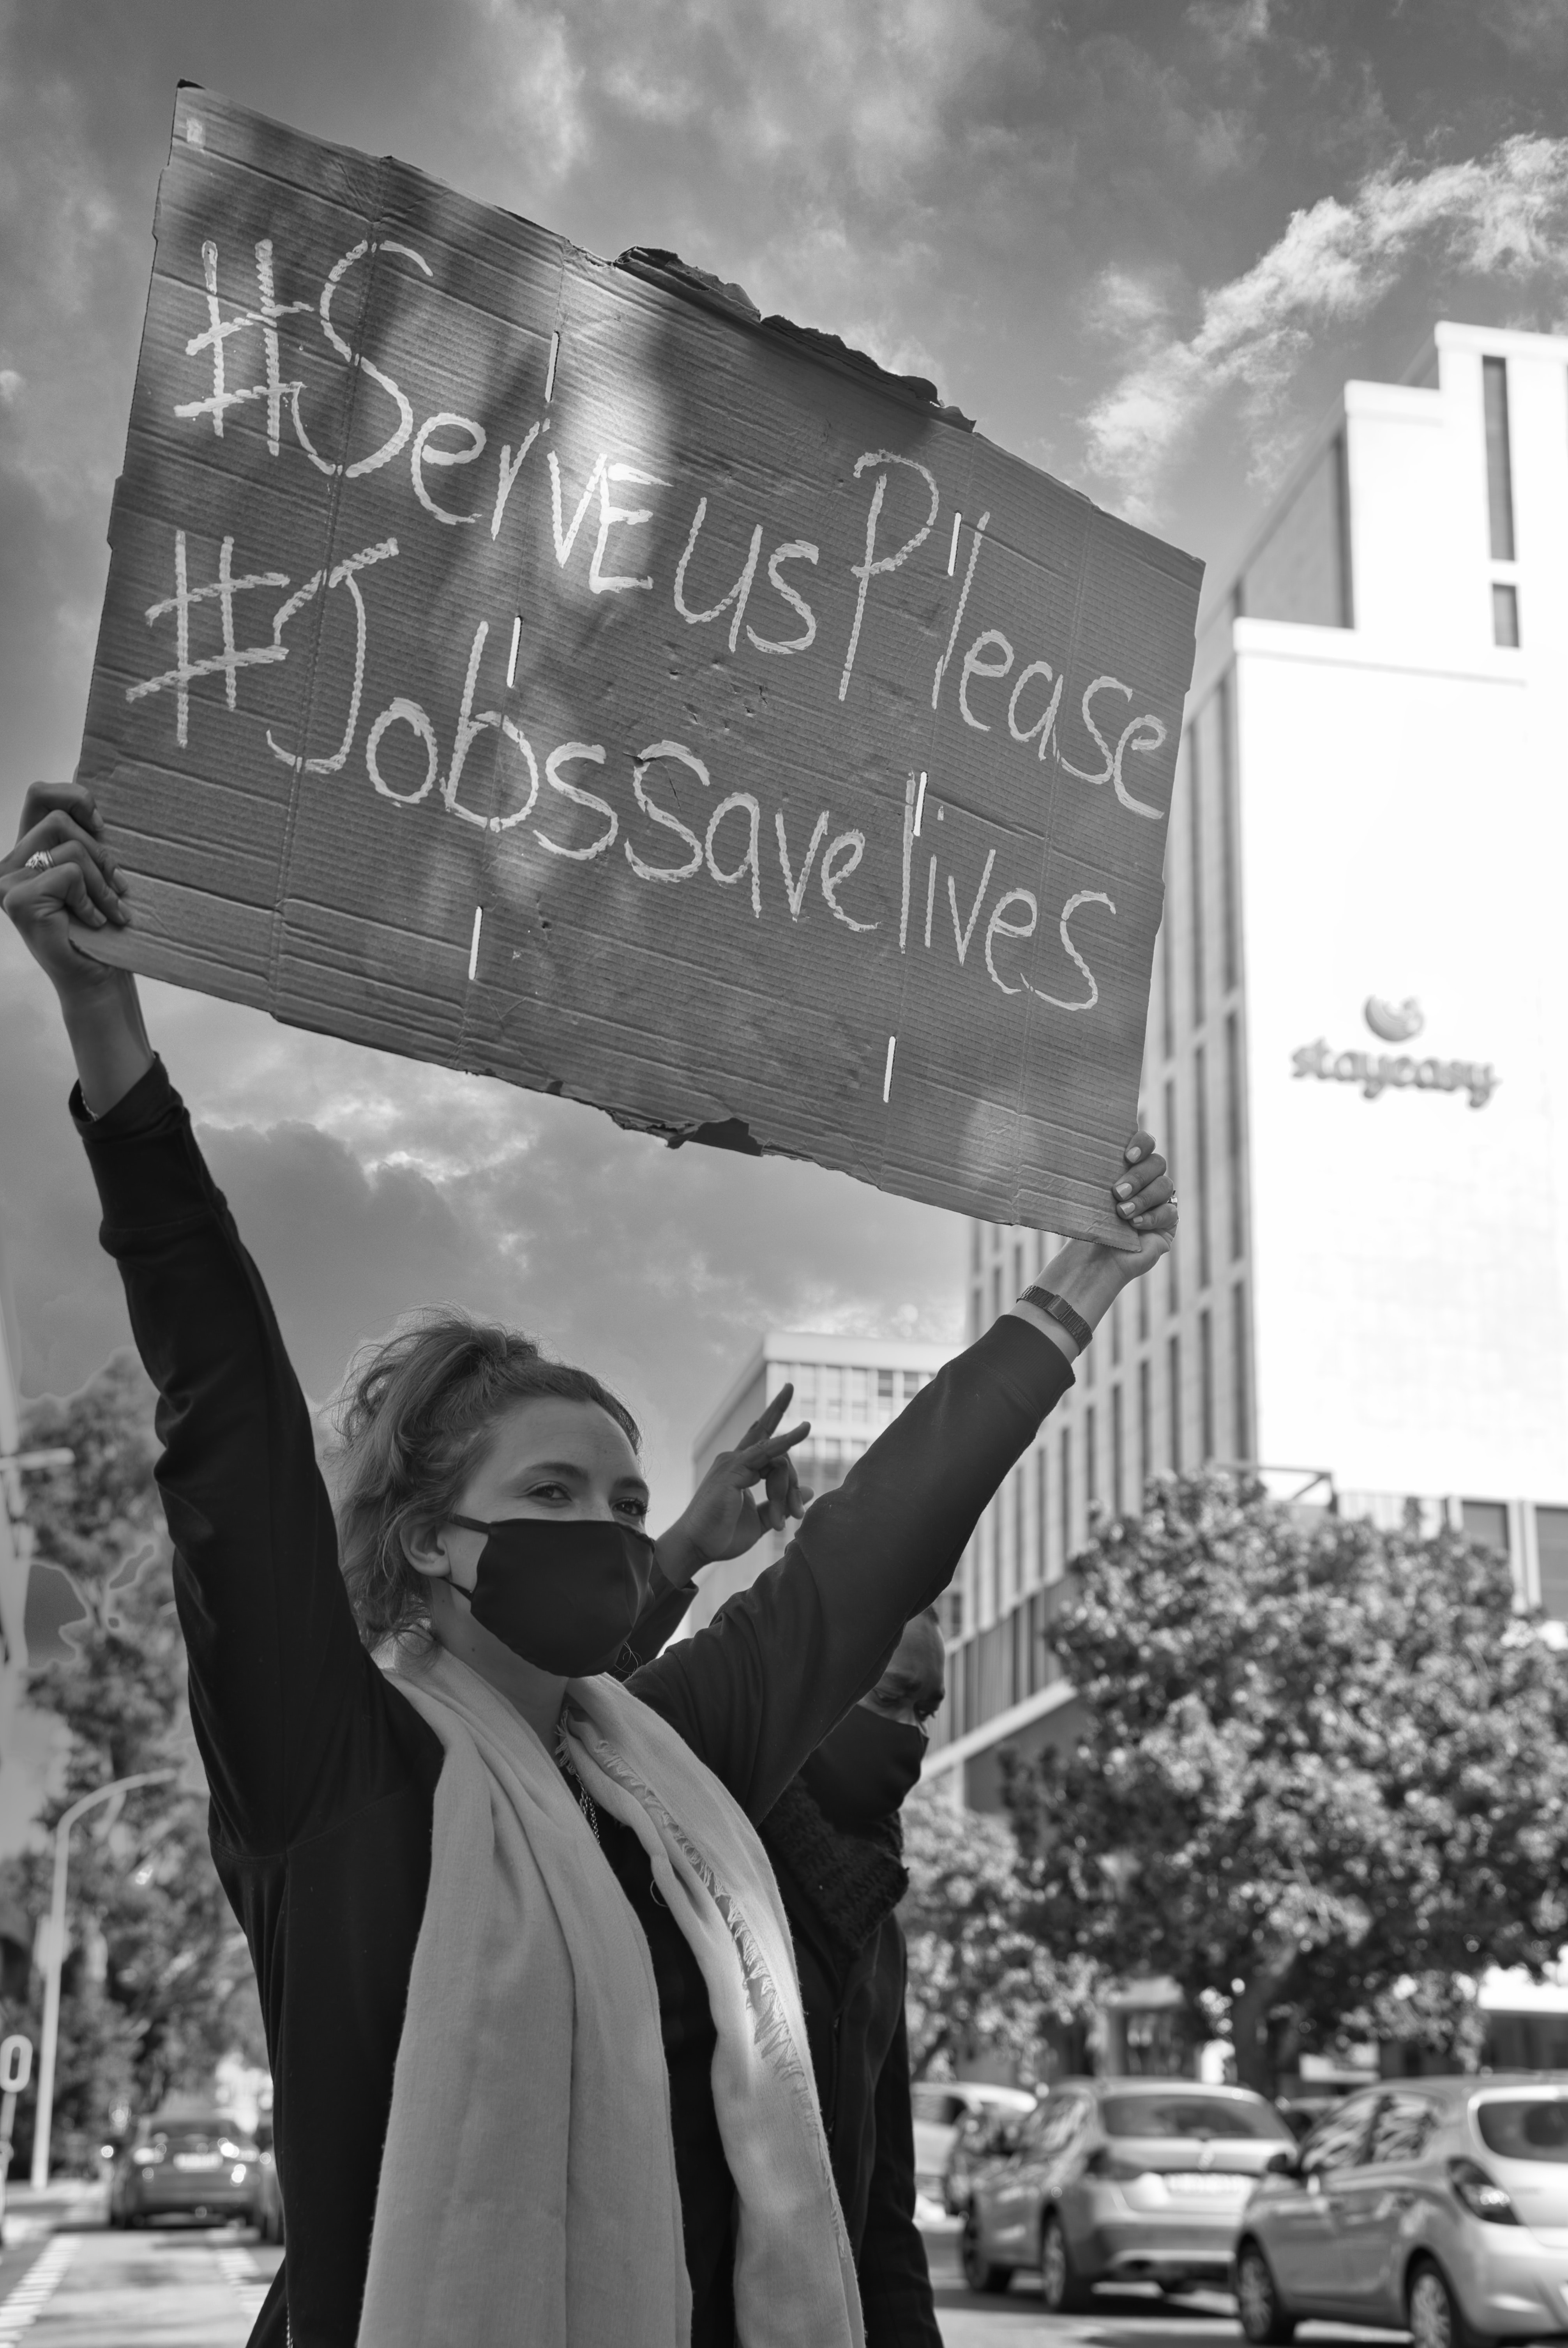 #ServEusPlease
#Jobssavelives
stayeasy
0